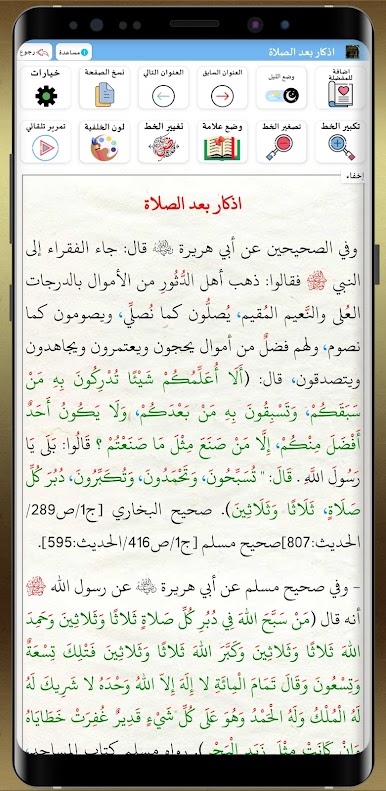 اذكار بعد الصلاة
مساعدة
رجوع
اضافة للمفضلة
وضع الليل
العنوان السابق
العنوان التالي
نسخ الصفحة
خيارات
تكبير الخط
تصغير الخط
وضع علامة
تغيير الخط
لون الخلفية
تمرير تلقائي
خفاء
اذكار بعد الصلاة
وفي الصحيحين عن أبي هريرة ﷺ قال: جاء الفقراء إلى
النبي ﷺ فقالوا: ذهب أهل الدُّثُورِ من الأموال بالدرجات
العُلى والنَّعيم المُقيم، يُصلُّون كما نُصلِّي، ويصومون كما
نصوم، ولهم فضلٌ من أموال يحجون ويعتمرون ويجاهدون
ويتصدقون، قال: (أَلَا أُعَلِّمُكُمْ شَيْئًا تُدْرِكُونَ بِهِ مَنْ
سَبَقَكُمْ، وَتَسْبِقُونَ بِهِ مَنْ بَعْدَكُمْ، وَلَا يَكُونُ أَحَدٌ
أَفْضَلَ مِنْكُمْ، إِلَّا مَنْ صَنَعَ مِثْلَ مَا صَنَعْتُمْ ؟ قَالُوا: بَلَى يَا
رَسُولَ اللَّهِ . قَالَ: " تُسَبِّحُونَ، وَتَحْمَدُونَ، وَتُكَبِّرُونَ، دُبُرَ كُلِّ
صَلَاةٍ، ثَلَاثًا وَثَلَاثِينَ). صحيح البخاري [ج1/ص289/
الحديث:807]صحيح مسلم [ج1/ص416/الحديث:595].
- وفي صحيح مسلم عن أبي هريرة عن رسول الله ﷺ
أنه قال (مَنْ سَبَّحَ اللهَ فِي دُبُرِ كُلِّ صَلَاةٍ ثَلَاثًا وَثَلَاثِينَ وَحَمِدَ
اللهَ ثَلَاثًا وَثَلَاثِينَ وَكَبَّرَ اللهَ ثَلَاثًا وَثَلَاثِينَ فَتْلِكَ تِسْعَةٌ
وَتِسْعُونَ وَقَالَ تَمَامَ الْمِائَةِ لَا إِلَهَ إِلَّا اللهُ وَحْدَهُ لَا شَرِيكَ لَهُ
لَهُ الْمُلْكُ وَلَهُ الْحَمْدُ وَهُوَ عَلَى كُلِّ شَيْءٍ قَدِيرٌ غُفِرَتْ خَطَايَاهُ
وَإِنْ كَانَتْ مِثْلَ زَبَدِ الْبَحْرِ). رواه مسلم كتاب المساجد،